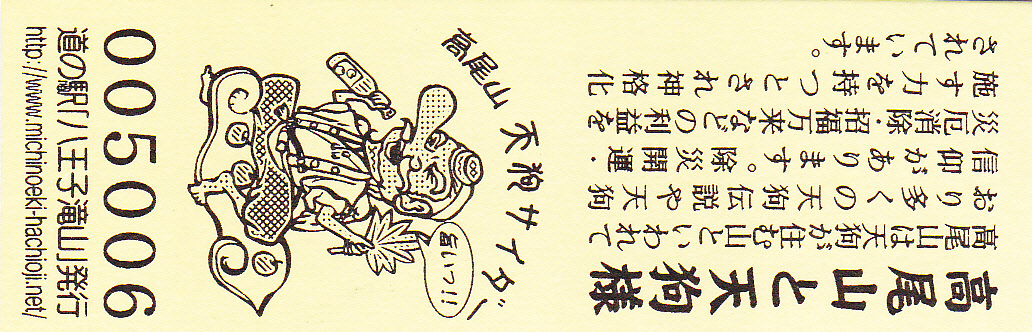 高尾山と天狗様
高尾山は天狗が住む山といわれて
おり多くの天狗伝説や天狗
信仰があります。除災開運・
災厄消除・招福万来などの利益を
施す力を持つとされ神格化
されています。
高尾山 天狗サイダー
旨いっ!!
005006
道の駅「八王子滝山」発行
http://www.michinoeki-hachioji.net/